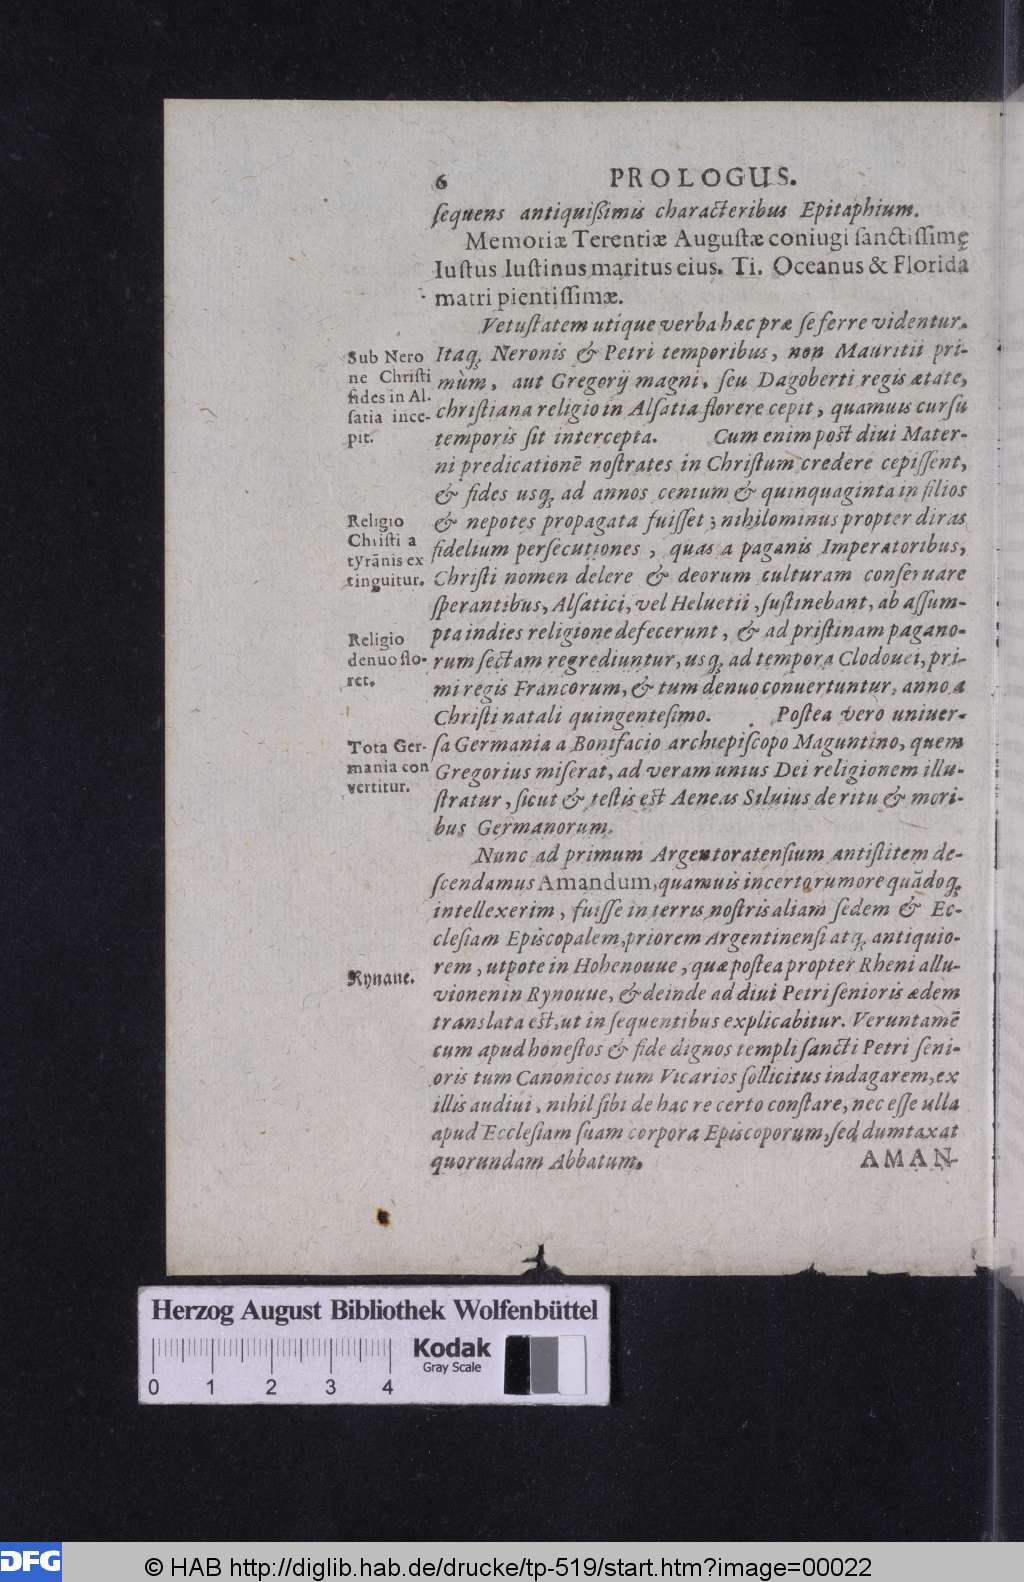 6 PROLOGUS.
ſequens antiquißimis characteribus Epitaphium.
Memoriæ Terentiæ Auguſtæ coniugi ſanctiſſimę
Iuſtus Iuſtinus maritus eius. Ti. Oceanus & Florida
matri pientiſſimæ.
Vetuſtatem utique verba hæc præ ſe ferre videntur.
Itaq; Neronis & Petri temporibus, non Mauritii pri-
mùm, aut Gregorij magni, ſeu Dagoberti regis ætate,
chriſtiana religio in Alſatia florere cepit, quamuis curſu
temporis ſit intercepta. Cum enim poſt diui Mater-
ni predicationē noſtrates in Chriſtum credere cepiſſent,
& fides usq; ad annos centum & quinquaginta in filios
& nepotes propagata fuiſſet; nihilominus propter diras
fidelium perſecutiones, quas a paganis Imperatoribus,
Chriſti nomen delere & deorum culturam conſeruare
ſperantibus, Alſatici, vel Heluetii, ſuſtinebant, ab aſſum-
pta indies religione defecerunt, & ad priſtinam pagano-
rum ſectam regrediuntur, usq; ad tempora Clodouei, pri-
mi regis Francorum, & tum denuo conuertuntur, anno a
Chriſti natali quingenteſimo. Poſtea vero uniuer-
ſa Germania a Bonifacio archiepiſcopo Maguntino, quem
Gregorius miſerat, ad veram unius Dei religionem illu-
ſtratur, ſicut & teſtis eſt Aeneas Siluius de ritu & mori-
bus Germanorum.
Nunc ad primum Argentoratenſium antiſtitem de-
ſcendamus Amandum, quamuis incerto rumore quādoq;
intellexerim, fuiſſe in terris noſtris aliam ſedem & Ec-
cleſiam Epiſcopalem, priorem Argentinenſi atq; antiquio-
rem, utpote in Hohenouue, quæ poſtea propter Rheni allu-
vionem in Rynouue, & deinde ad diui Petri ſenioris ædem
translata eſt, ut in ſequentibus explicabitur. Veruntamē
cum apud honeſtos & fide dignos templi ſancti Petri ſeni-
oris tum Canonicos tum Vicarios ſollicitus indagarem, ex
illis audiui, nihil ſibi de hac re certo conſtare, nec eſſe ulla
apud Eccleſiam ſuam corpora Epiſcoporum, ſed dumtaxat
quorundam Abbatum. AMAN-
Sub Nero
ne Chriſti
fides in Al-
ſatia ince-
pit.
Religio
Chriſti a
tyrānis ex
tinguitur.
Religio
denuo flo-
ret.
Tota Ger-
mania con
vertitur.
Rynaue.
Herzog August Bibliothek Wolfenbüttel
0 1 2 3 4
Kodak
Gray Scale
DFG
© HAB http://diglib.hab.de/drucke/tp-519/start.htm?image=00022